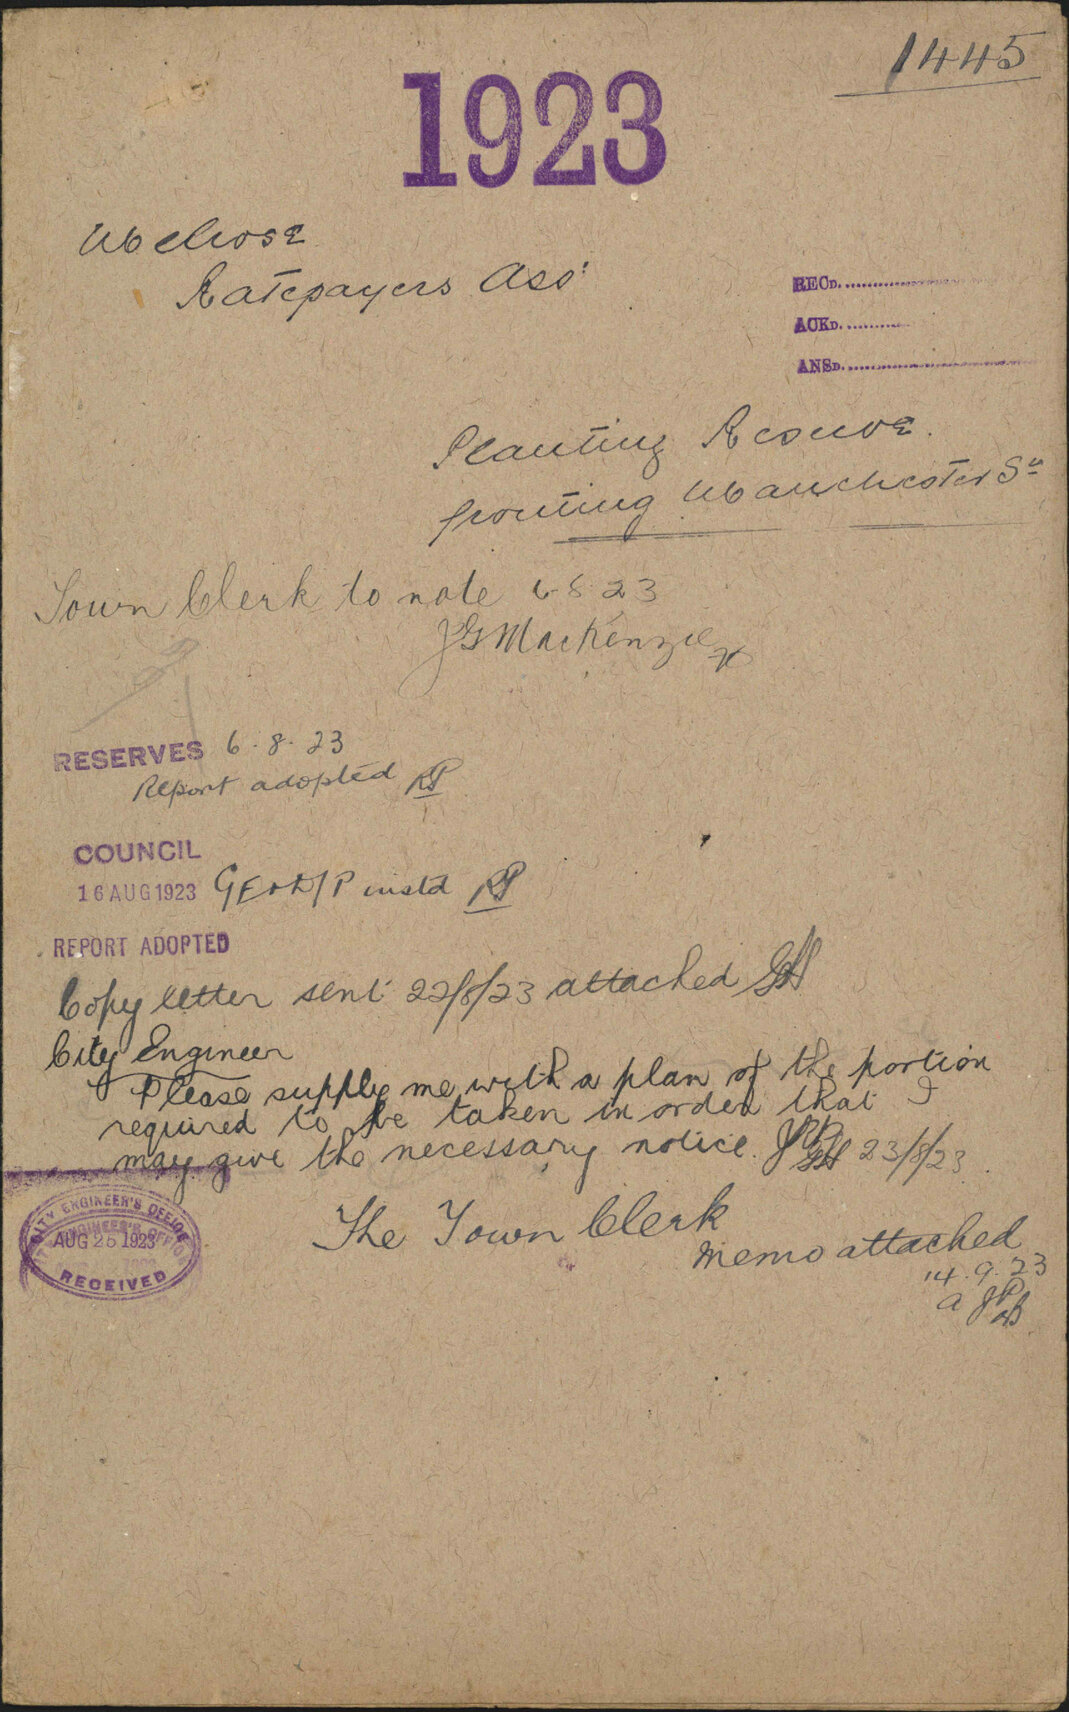 1445
1923
Melrose
Ratepayers Ass:
RECD.
ACKD.
ANSD.
Planting Reserve.
fronting Manchester St
Town Clerk to note 6 8 23
JG MacKenzie
RESERVES 6.8.23
Report adopted RP
COUNCIL
16 AUG 1923 instd RP
REPORT ADOPTED
Copy letter sent 22/8/23 attached
City Engineer
Please supply me with a plan of the portion
required to be taken in order that I
may give the necessary notice. 23/8/23
CITY ENGINEER'S OFFICE
AUG 25 1923
RECEIVED
The Town Clerk
Memo attached
14.9.23